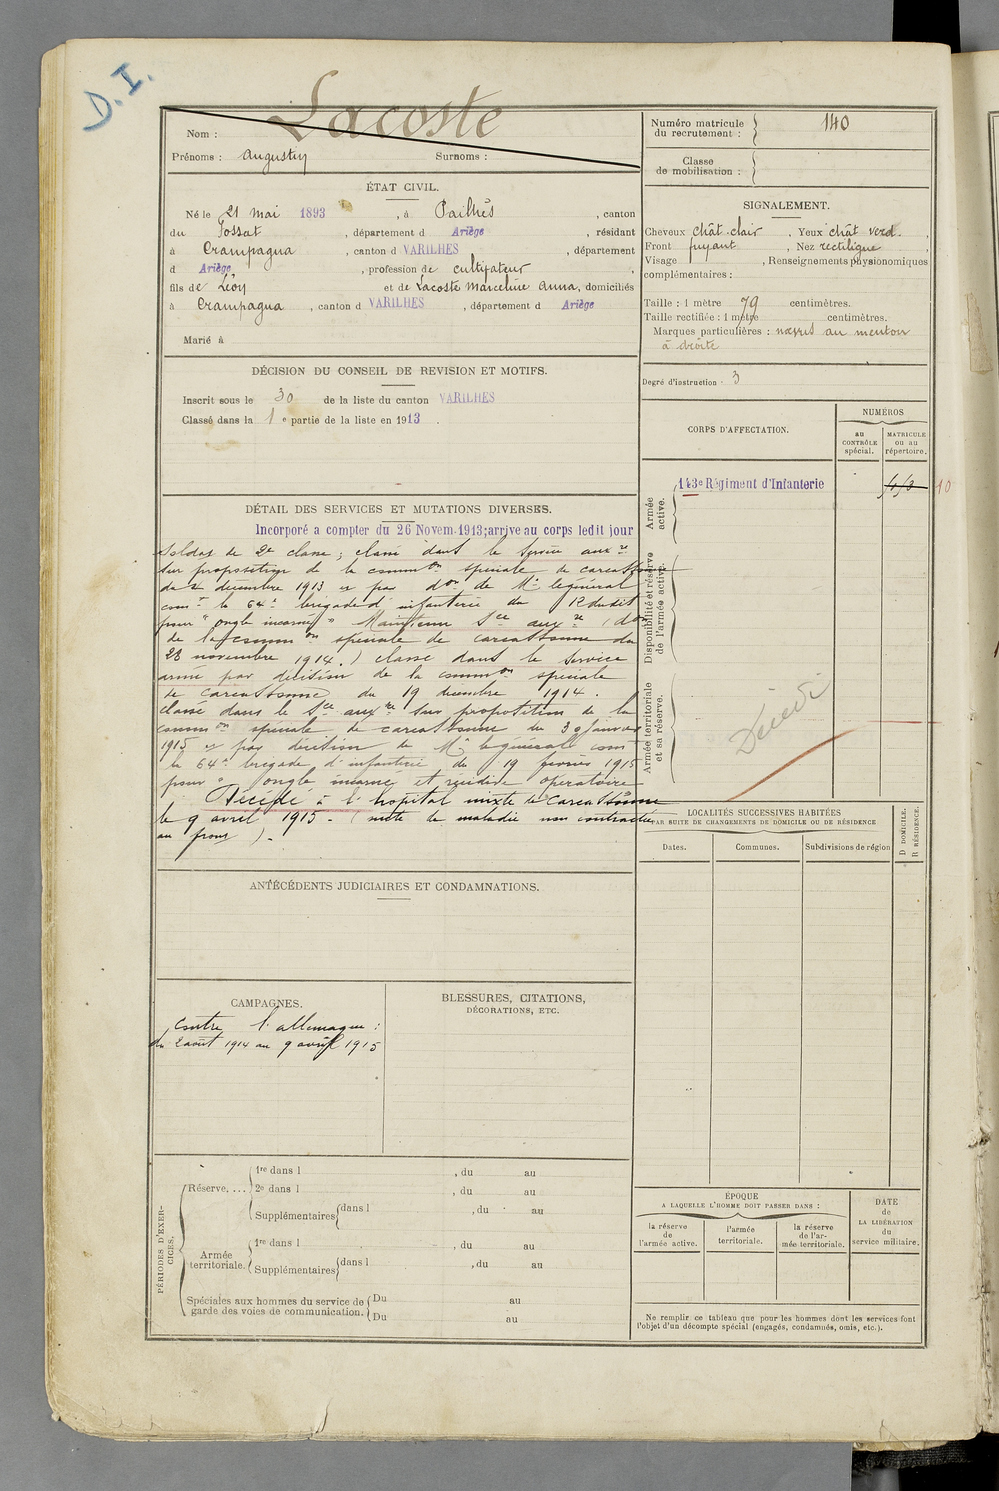 D. I.
Lacoste
Nom :
Prénoms : Augustin Surnoms :
Numéro matricule
du recrutement : 140
Classe
de mobilisation :
ÉTAT CIVIL.
Né le 21 mai 1893 , à Pailhès , canton
du Fossat , département d Ariège , résidant
à Crampagna , canton d VARILHES , département
d Ariège , profession de cultivateur ,
fils de Léon et de Lacoste Marceline Anna, domiciliés
à Crampagna , canton d VARILHES , département d Ariège
Marié à
SIGNALEMENT.
Cheveux chât. clair , Yeux chât verd. ,
Front fuyant , Nez rectiligne ,
Visage , Renseignements physionomiques
complémentaires :
Taille : 1 mètre 79 centimètres.
Taille rectifiée : 1 mètre centimètres.
Marques particulières : nævus au menton
à droite
Degré d'instruction . 3
DÉCISION DU CONSEIL DE REVISION ET MOTIFS.
Inscrit sous le 30 de la liste du canton VARILHES
Classé dans la 1 e partie de la liste en 1913 .
CORPS D'AFFECTATION.
NUMÉROS
au
CONTRÔLE
spécial.
MATRICULE
ou au
répertoire.
Armée
active.
143e Régiment d'Infanterie
10
Disponibilité et réserve
de l'armée active.
Armée territoriale
et sa réserve.
Décédé
DÉTAIL DES SERVICES ET MUTATIONS DIVERSES.
Incorporé a compter du 26 Novem. 1913; arrive au corps ledit jour
Soldat de 2e classe ; classé dans le Service auxre
sur proposition de la common spéciale de Carcassonne
du 2 décembre 1913 et par don de Mr le général
comt la 64e brigade d'infanterie du 12 dudit
pour "ongle incarné" Maintenu Sce auxre (don
de la common spéciale de Carcassonne du
28 novembre 1914.) classé dans le Service
armé par décision de la common spéciale
de Carcassonne du 19 décembre 1914.
Classé dans le Sce auxre sur proposition de la
common spéciale de Carcassonne du 30 janvier
1915 et par décision de Mr le général comt
la 64e brigade d'infanterie du 19 février 1915
pour " ongle incarné et récidive opératoire
Décédé à l'hopital mixte de Carcassonne
le 9 avril 1915 - (suite de maladie non contractée
au front ). -
LOCALITÉS SUCCESSIVES HABITÉES
PAR SUITE DE CHANGEMENTS DE DOMICILE OU DE RÉSIDENCE
Dates.
Communes.
Subdivisions de région
D DOMICILE.
R RÉSIDENCE.
ANTÉCÉDENTS JUDICIAIRES ET CONDAMNATIONS.
CAMPAGNES.
Contre l'allemagne :
du 2 août 1914 au 9 avril 1915
BLESSURES, CITATIONS,
DÉCORATIONS, ETC.
PÉRIODES D'EXER-
CICES.
Réserve. ...
1re dans l , du au
2e dans l , du au
Supplémentaires dans l , du au
Armée
territoriale.
1re dans l , du au
Supplémentaires dans l , du au
Spéciales aux hommes du service de
garde des voies de communication.
Du au
Du au
ÉPOQUE
A LAQUELLE L'HOMME DOIT PASSER DANS :
la réserve
de
l'armée active.
l'armée
territoriale.
la réserve
de l'ar-
mée territoriale.
DATE
de
LA LIBÉRATION
du
service militaire.
Ne remplir ce tableau que pour les hommes dont les services font
l'objet d'un décompte spécial (engagés, condamnés, omis, etc.).